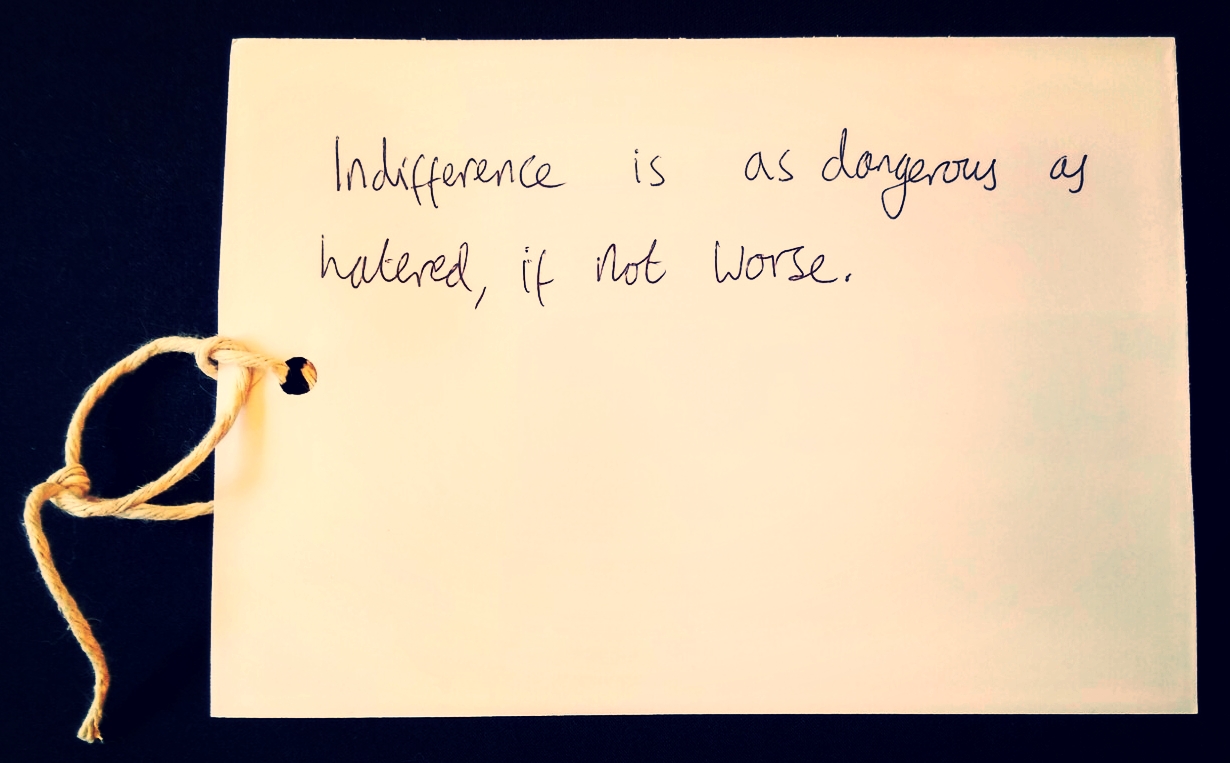 Indifference is as dangerous as
hatered, if not worse.